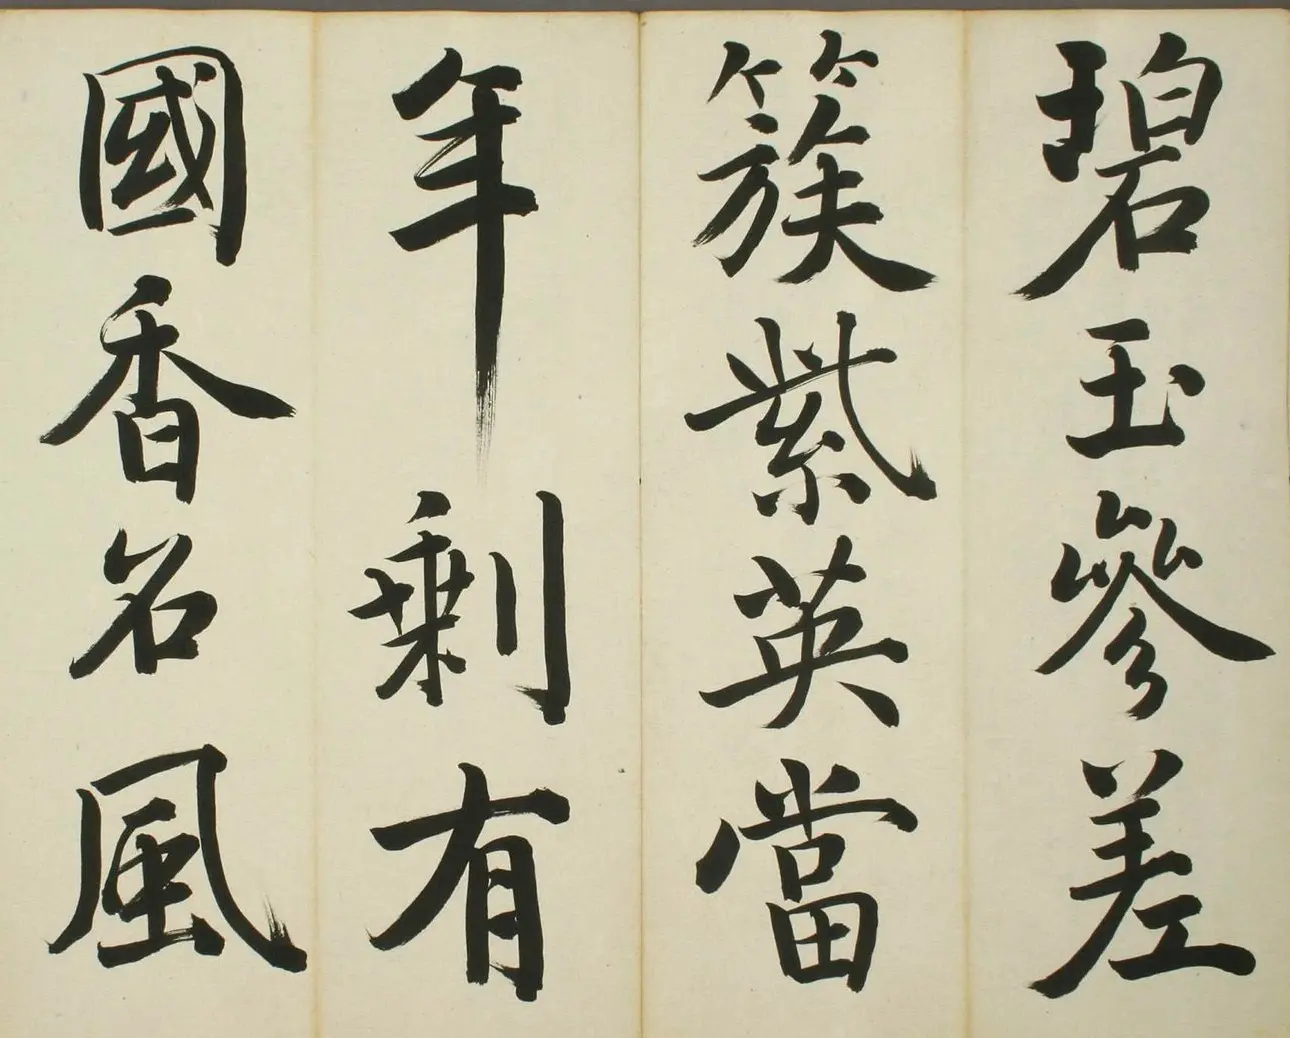 碧玉參差
簇紫英當
年剩有
國香名風